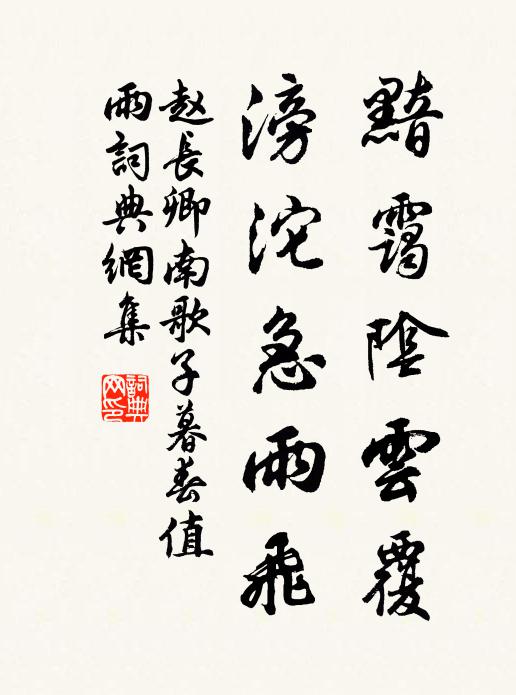 黯靄陰雲覆
滂沱急雨飛
赵長卿南歌子暮春值
雨詞典網集
詞典
网印